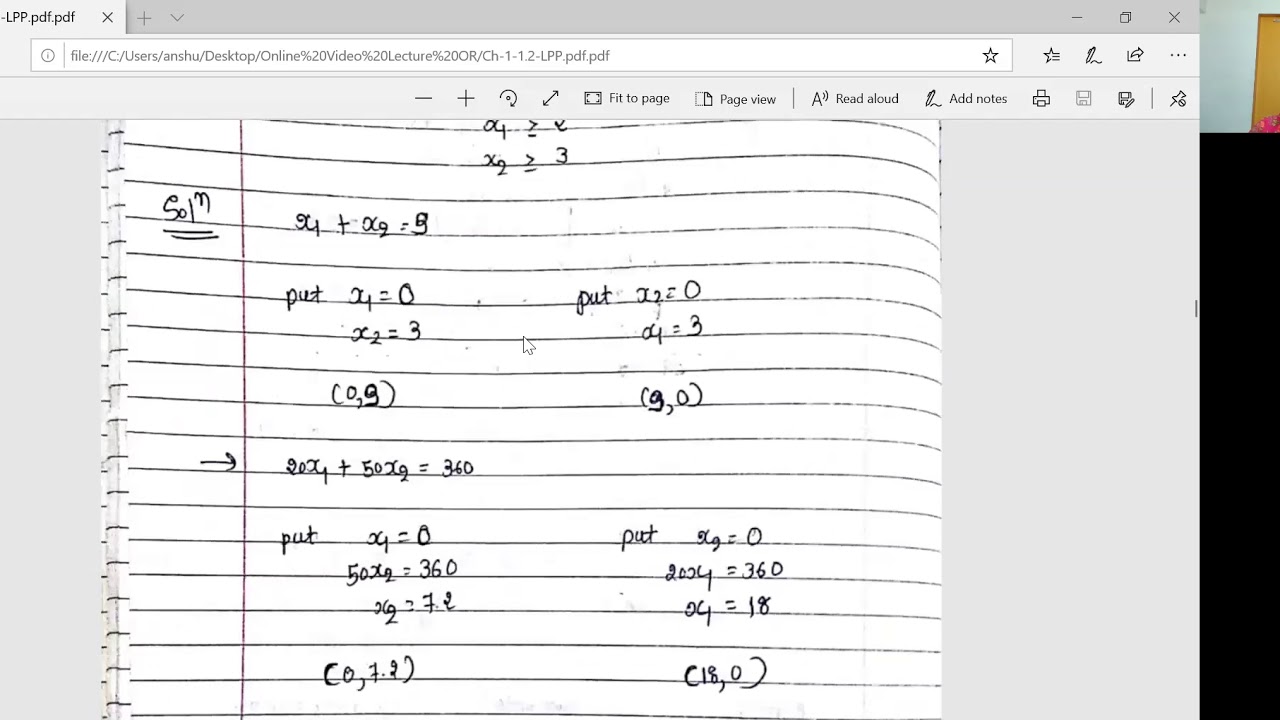 -LPP.pdf.pdf
file:///C:/Users/anshu/Desktop/Online%20Video%20Lecture%20OR/Ch-1-1.2-LPP.pdf.pdf
Fit to page Page view Read aloud Add notes
x₁ ≥ 2
x₂ ≥ 3
Solⁿ x₁ + x₂ = 9
put x₁ = 0 put x₂ = 0
x₂ = 3 x₁ = 3
(0,9) (9,0)
→ 20x₁ + 50x₂ = 360
put x₁ = 0 put x₂ = 0
50x₂ = 360 20x₁ = 360
x₂ = 7.2 x₁ = 18
(0,7.2) (18,0)